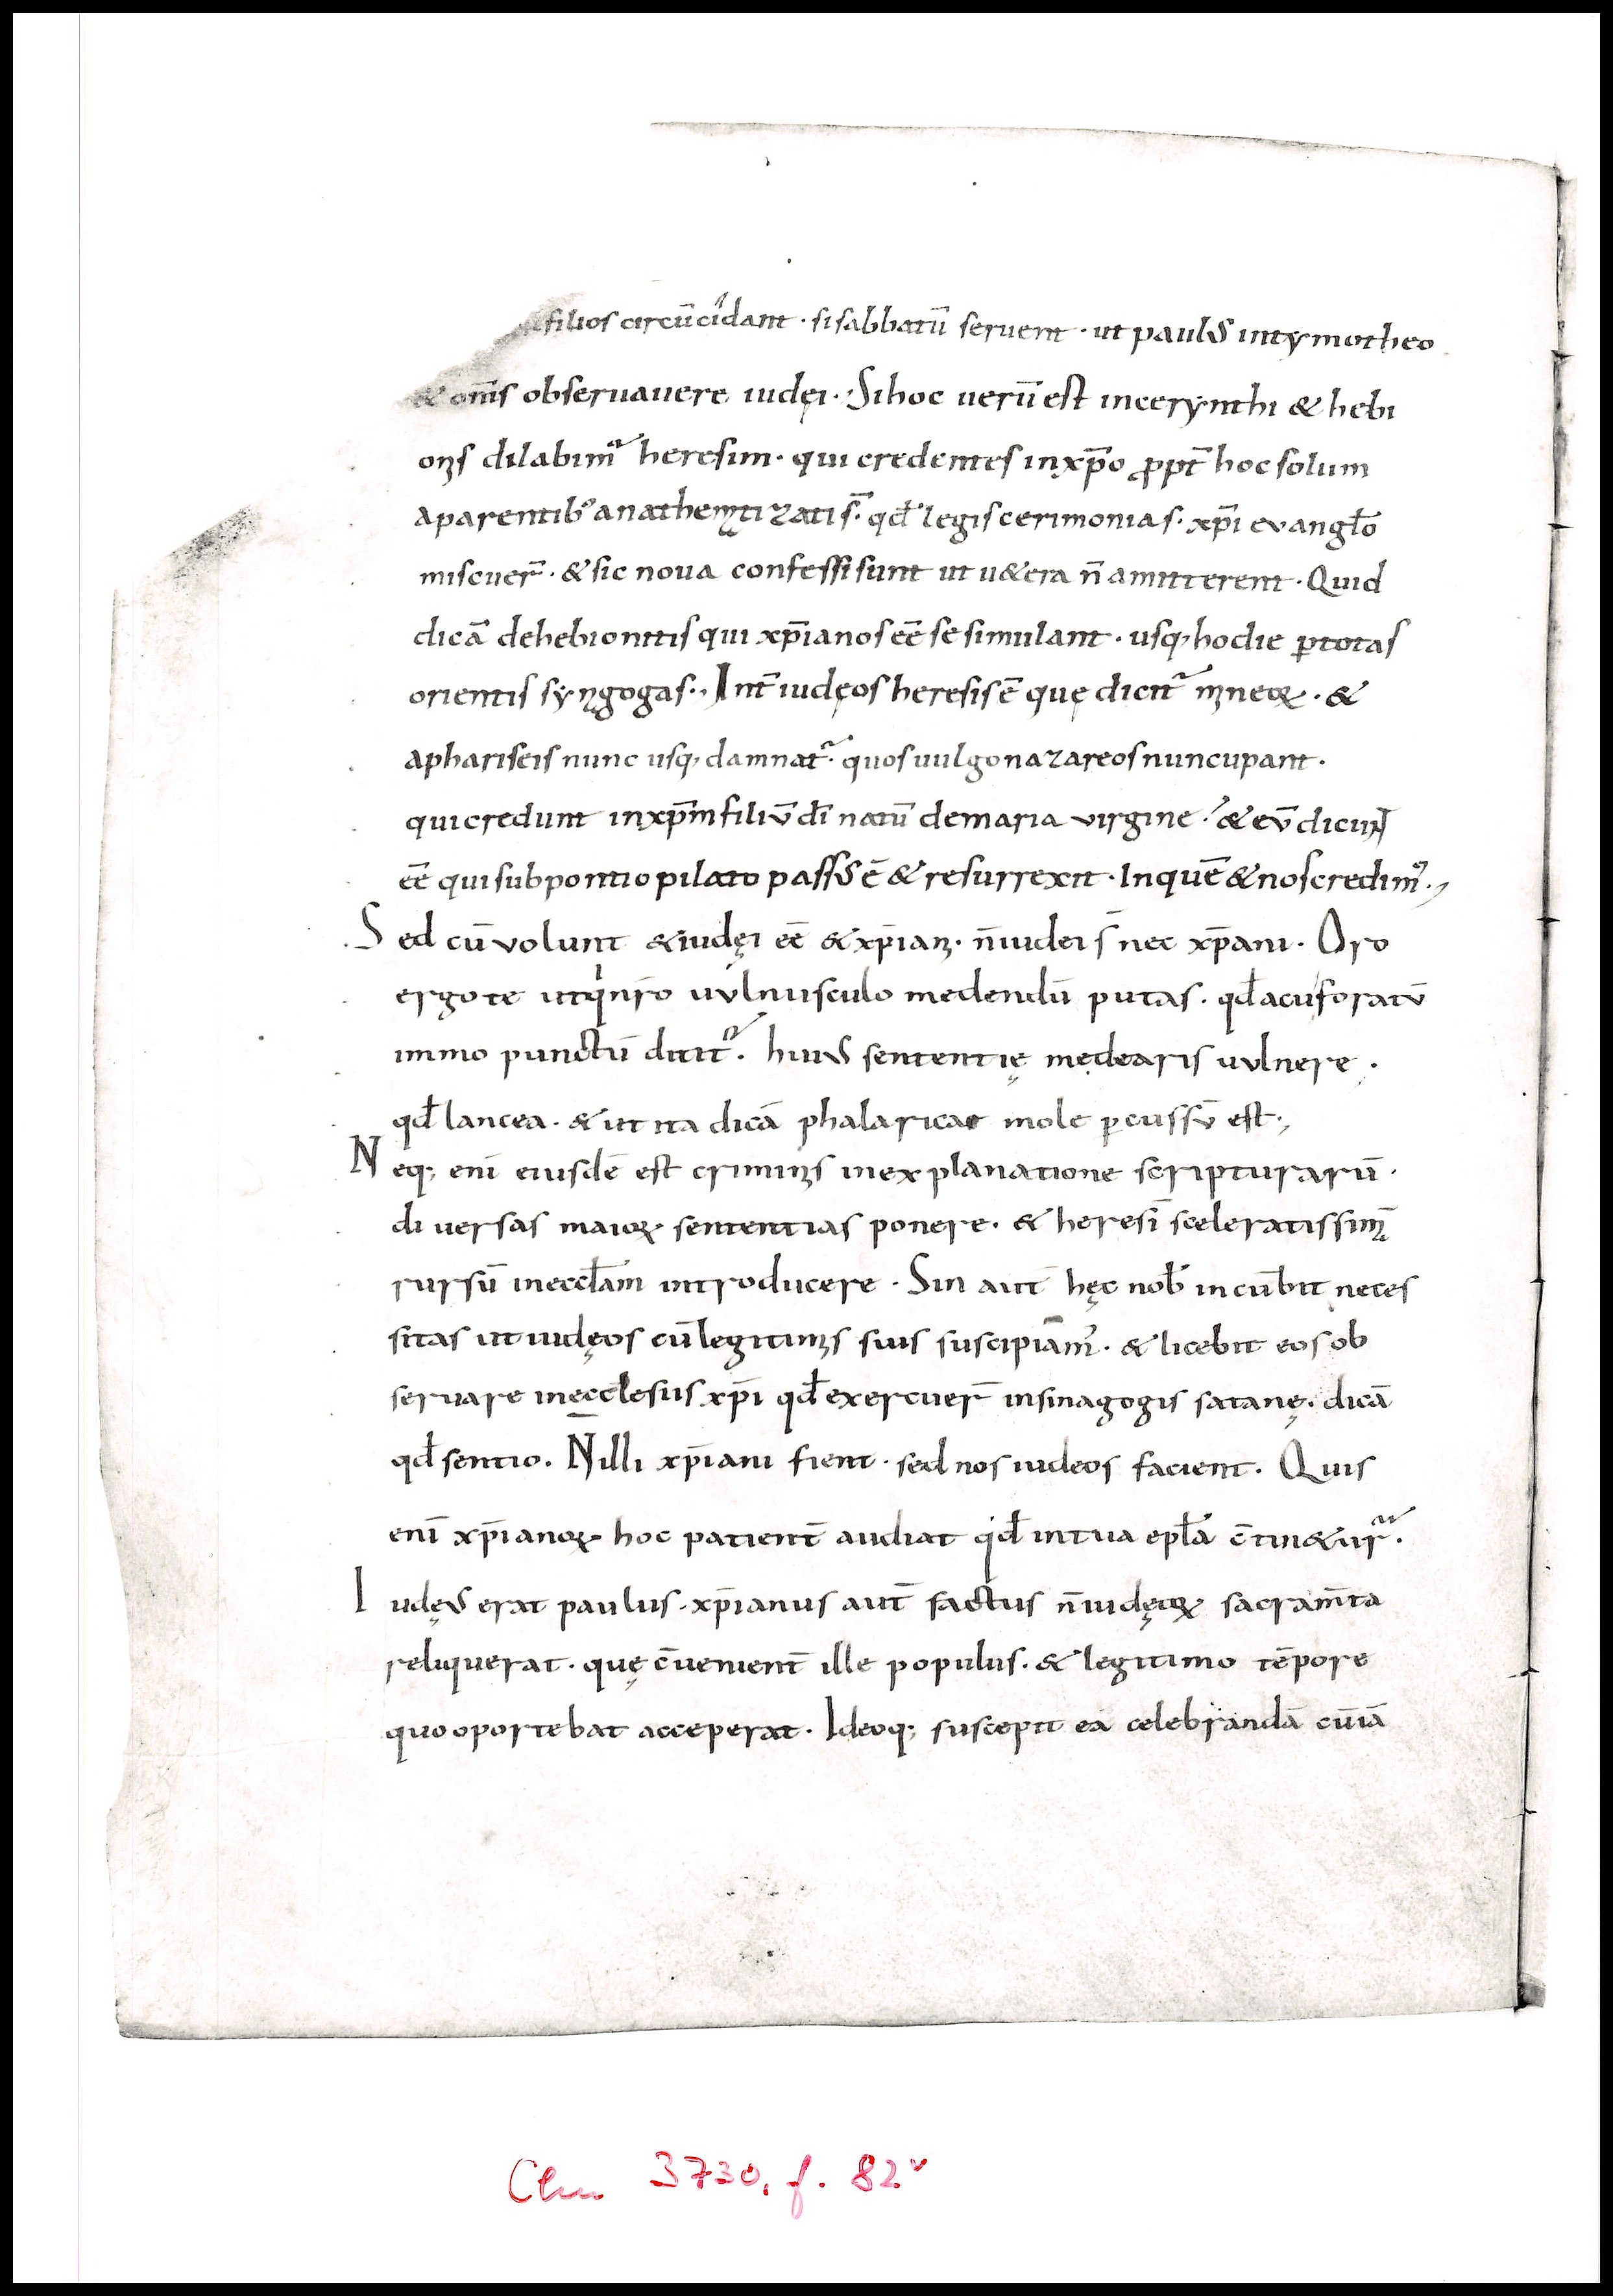 filios circūcidant · si sabbatū seruent · ut paulꝰ intymotheo
& om̄s obseruauere iudęi · Si hoc uerū est incerynthi & hebi
onis dilabim᷑ heresim · qui credentes inxp̄o ꝓpt̄ hoc solum
aparentib; anathematizati s̄ · qđ legis cerimonias · xp̄i evangłō
miscuer̄ · & sic noua confessi sunt ut u&era n̄ amitterent · Quid
dicā dehebionitis qui xp̄ianos eē se simulant · usq; hodie ꝑtotas
orientis synagogas ·, Int̄ iudęos heresis ē quę dicit᷑ mineoꝝ · &
aphariseis nunc usq; damnat᷑ · quos uulgo nazareos nuncupant ·
qui credunt inxp̄m filiū dī natū demaria virgine · & eū dicunt
eē qui sub pontio pilato passꝰ ē & resurrexit · Inquē & nos credimꝰ ·,
Sed cū volunt & iudęi eē & xp̄iani · n̄ iudei s̄ nec xp̄ani · Oro
ergo te ut qi nr̄o uulnusculo medendū putas · qđ acu foratū
immo punctū dicit᷑ · huiꝰ sententię medearis uulnere ·
qđ lancea · & ut ita dicā phalaricae mole ꝑcussū est ·,
Neq; enī eiusdē est criminis inexplanatione scripturarū ·
diuersas maioꝝ sententias ponere · & heresī sceleratissimā
rursū inecctam introducere · Sin aut̄ hęc nob̄ incūbit neces
sitas ut iudęos cū legitimis suis suscipiamꝰ · & licebit eos ob
seruare inęcclesiis xp̄i qđ exercuer̄ insinagogis satanę · dicā
qđ sentio · N̄ illi xp̄iani fient · sed nos iudeos facient · Quis
enī xp̄ianoꝝ hoc patient̄ audiat qđ intua epłā c̄tin&ur᷑ ·
Iudęꝰ erat paulus · xp̄ianus aut̄ factus n̄ iudęoꝝ sacram̄ta
reliquerat · quę c̄uenient̄ ille populus · & legitimo tēpore
quo oportebat acceperat · Ideoq; suscepit ea celebrandā cū iā
Clm 3730, f. 82ᵛ